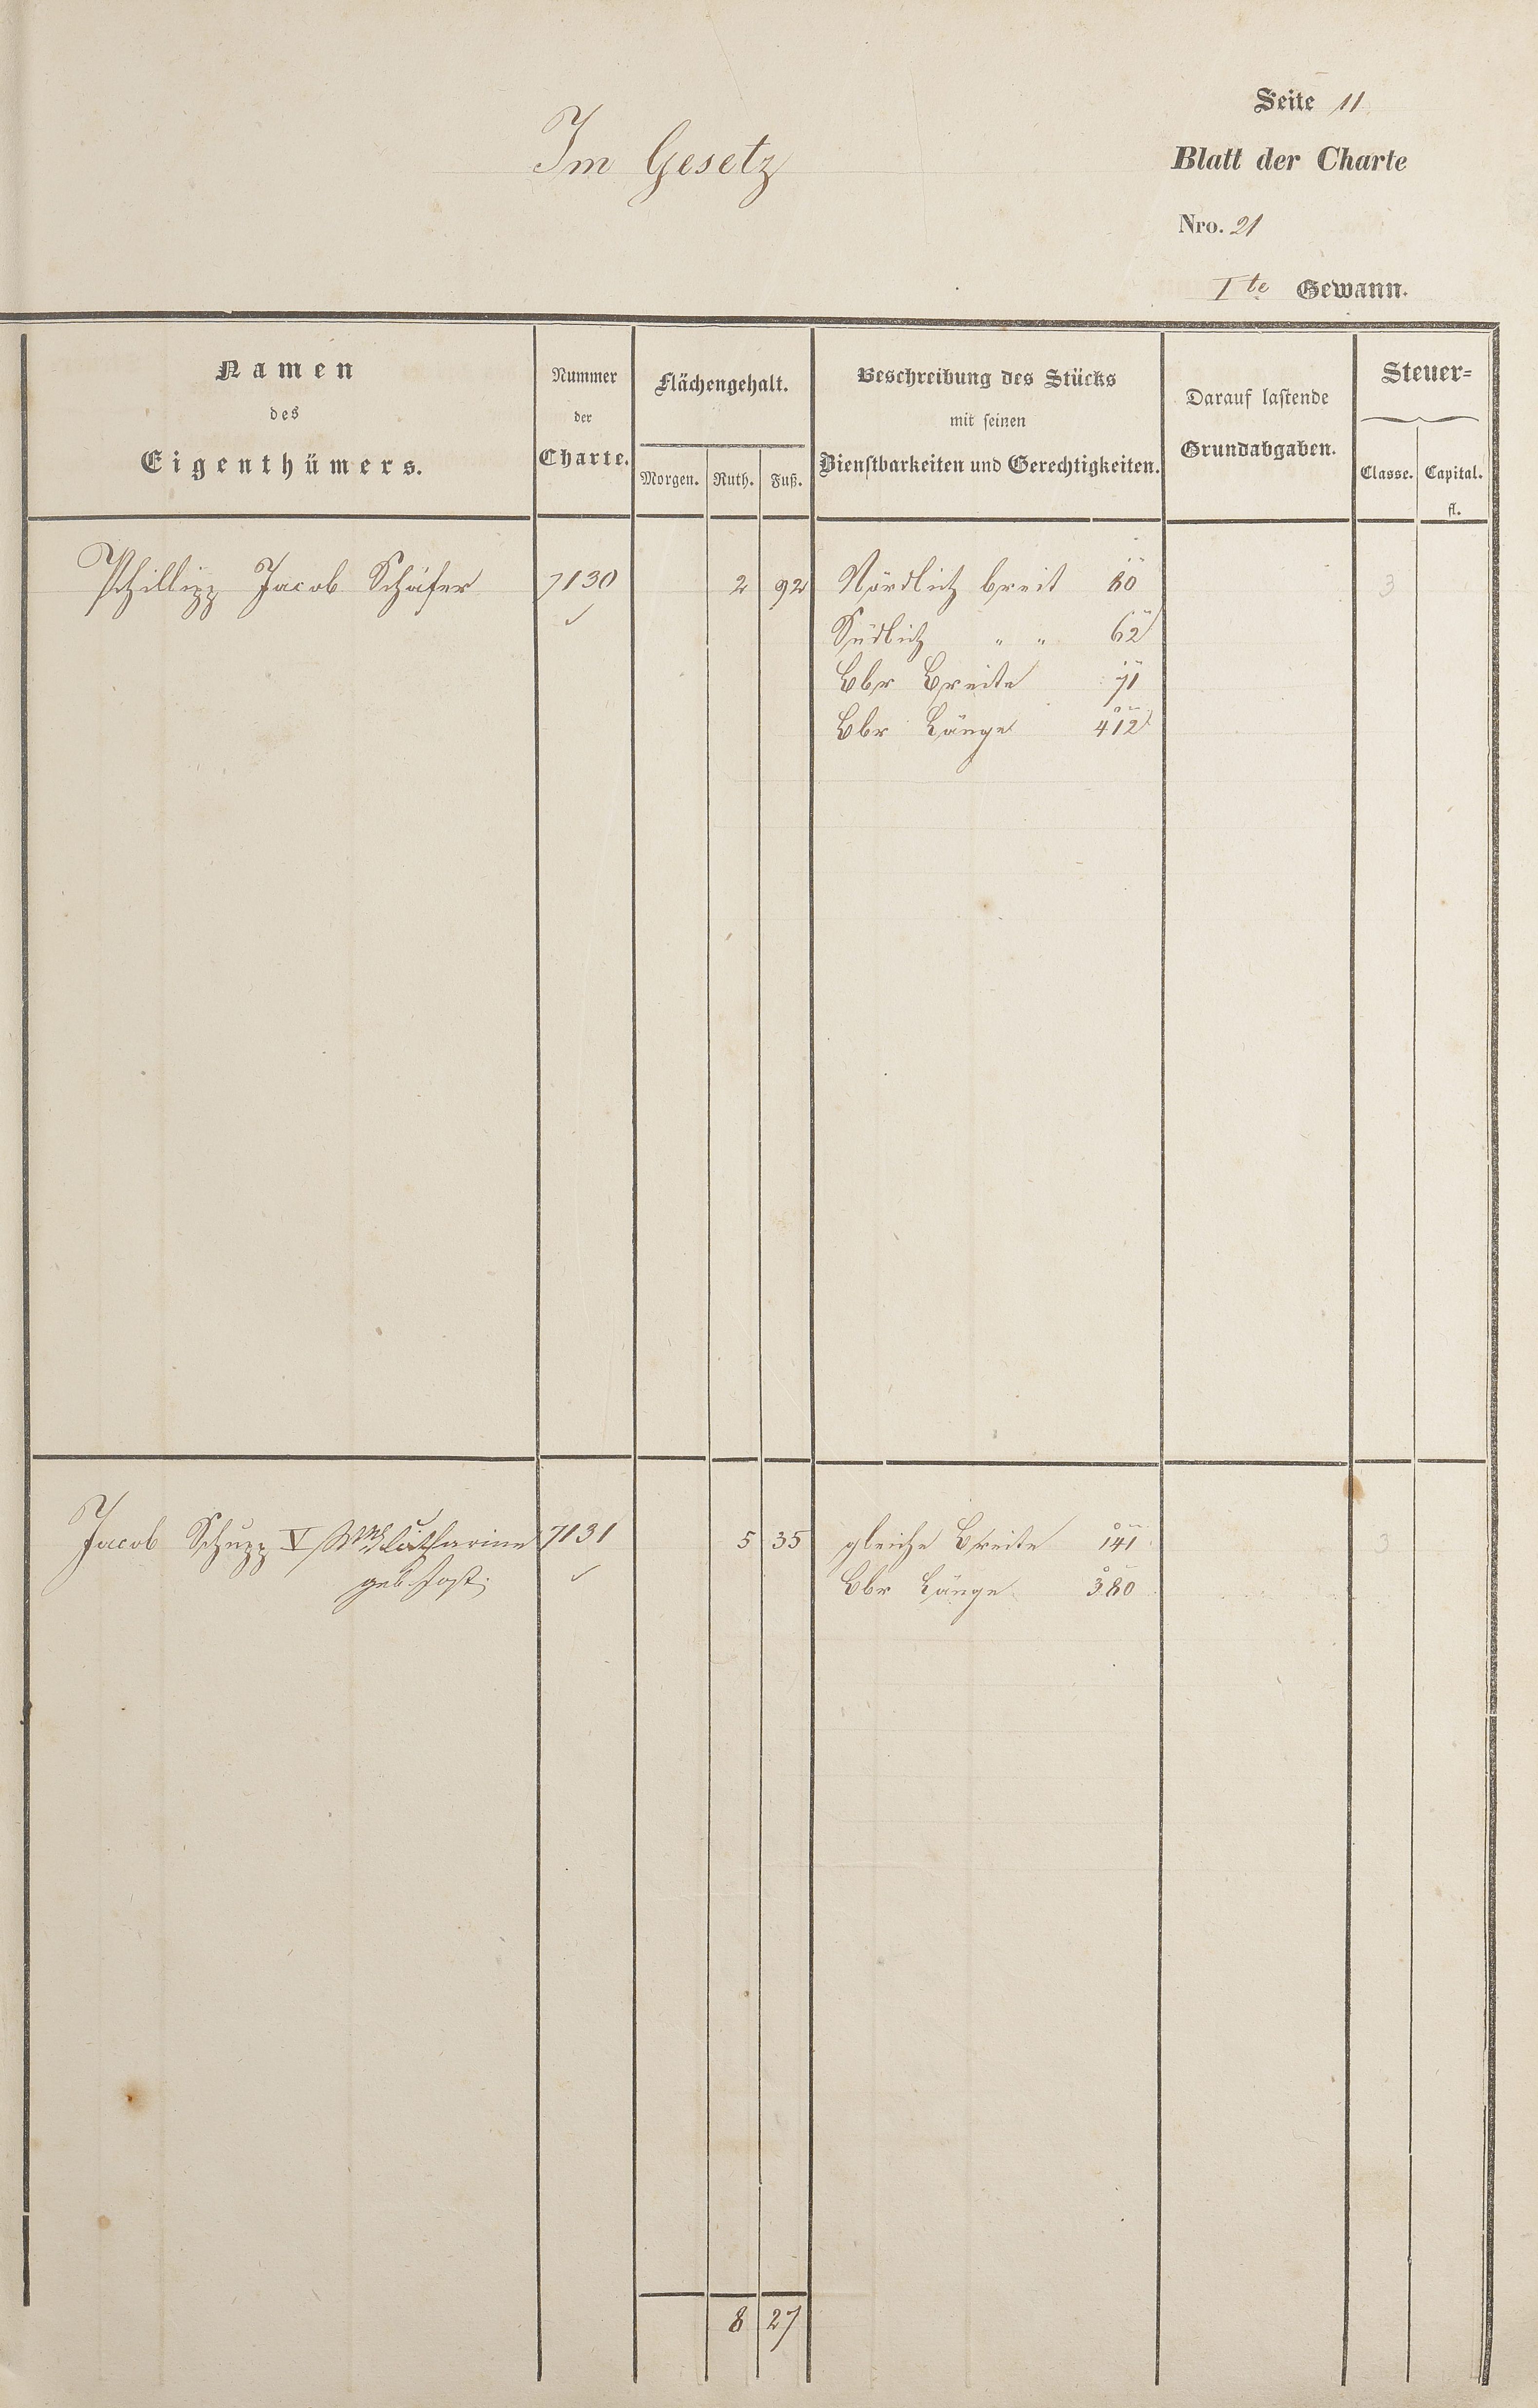 Seite 11
Im Gesetz
Blatt der Charte
Nro. 21
Ite Gewann.
Namen
des
Eigenthümers.
Nummer
der
Charte.
Flächengehalt.
Morgen. Ruth. Fuß.
Beschreibung des Stücks
mit seinen
Dienstbarkeiten und Gerechtigkeiten.
Darauf lastende
Grundabgaben.
Steuer=
Classe. Capital.
fl.
Phillipp Jacob Schäfer 7130 2 92 Nördlich breit 80 3
Südlich " " 62
Obr Breite 71
Obr Länge 412
Jacob Schupp V Catharine 7131 5 35 gleiche Breite 141 3
geb. Jost Obr Länge 380
8 27